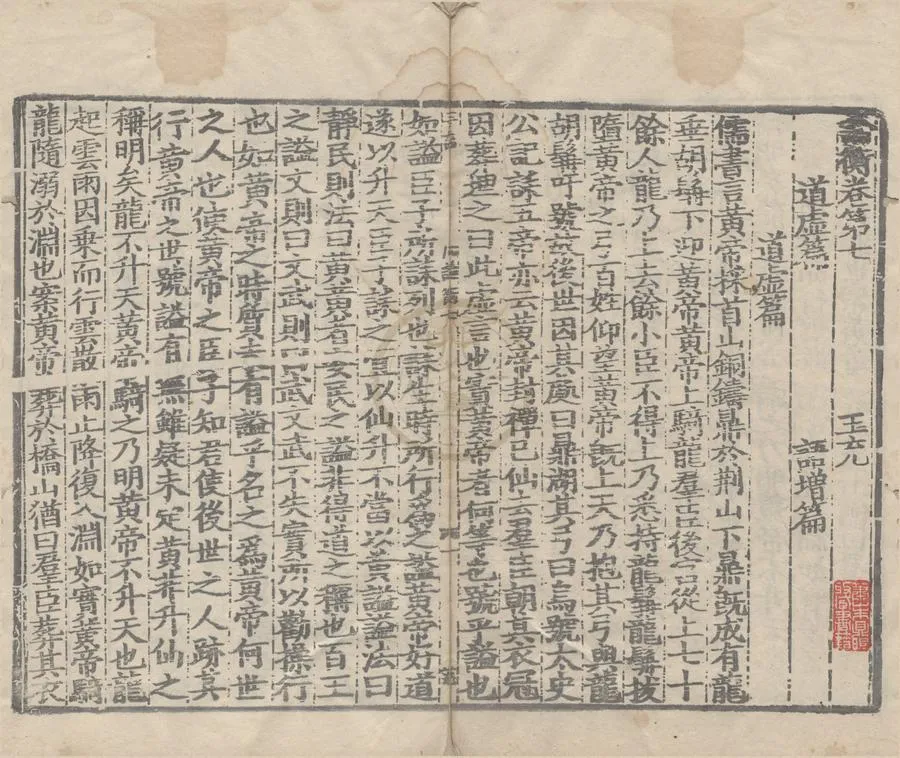 論衡卷第七 王充
道虛篇 語增篇
道虛篇
儒書言黃帝採首山銅鑄鼎於荆山下鼎既成有龍
垂胡髯下迎黃帝黃帝上騎龍羣臣後宮從上七十
餘人龍乃上去餘小臣不得上乃悉持龍髯龍髯拔
墮黃帝之弓百姓仰望黃帝既上天乃抱其弓與龍
胡髯吁號故後世因其處曰鼎湖其弓曰烏號太史
公記誄五帝亦云黃帝封禪已仙去羣臣朝其衣冠
因葬埋之曰此虛言也實黃帝者何等也號乎謚也
如謚臣子所誄列也誄生時所行爲之謚黃帝好道
遂以升天臣子誄之宜以仙升不當以黃謚謚法曰
靜民則法曰黃黃者安民之謚非得道之稱也百王
之謚文則曰文武則曰武文武不失實所以勸操行
也如黃帝之時質未有謚乎名之爲黃帝何世
之人也使黃帝之臣子知君使後世之人跡其
行黃帝之世號謚有無雖疑未定黃非升仙之
稱明矣龍不升天黃帝騎之乃明黃帝不升天也龍
起雲雨因乘而行雲散雨止降復入淵如實黃帝騎
龍隨溺於淵也案黃帝葬於橋山猶曰羣臣葬其衣